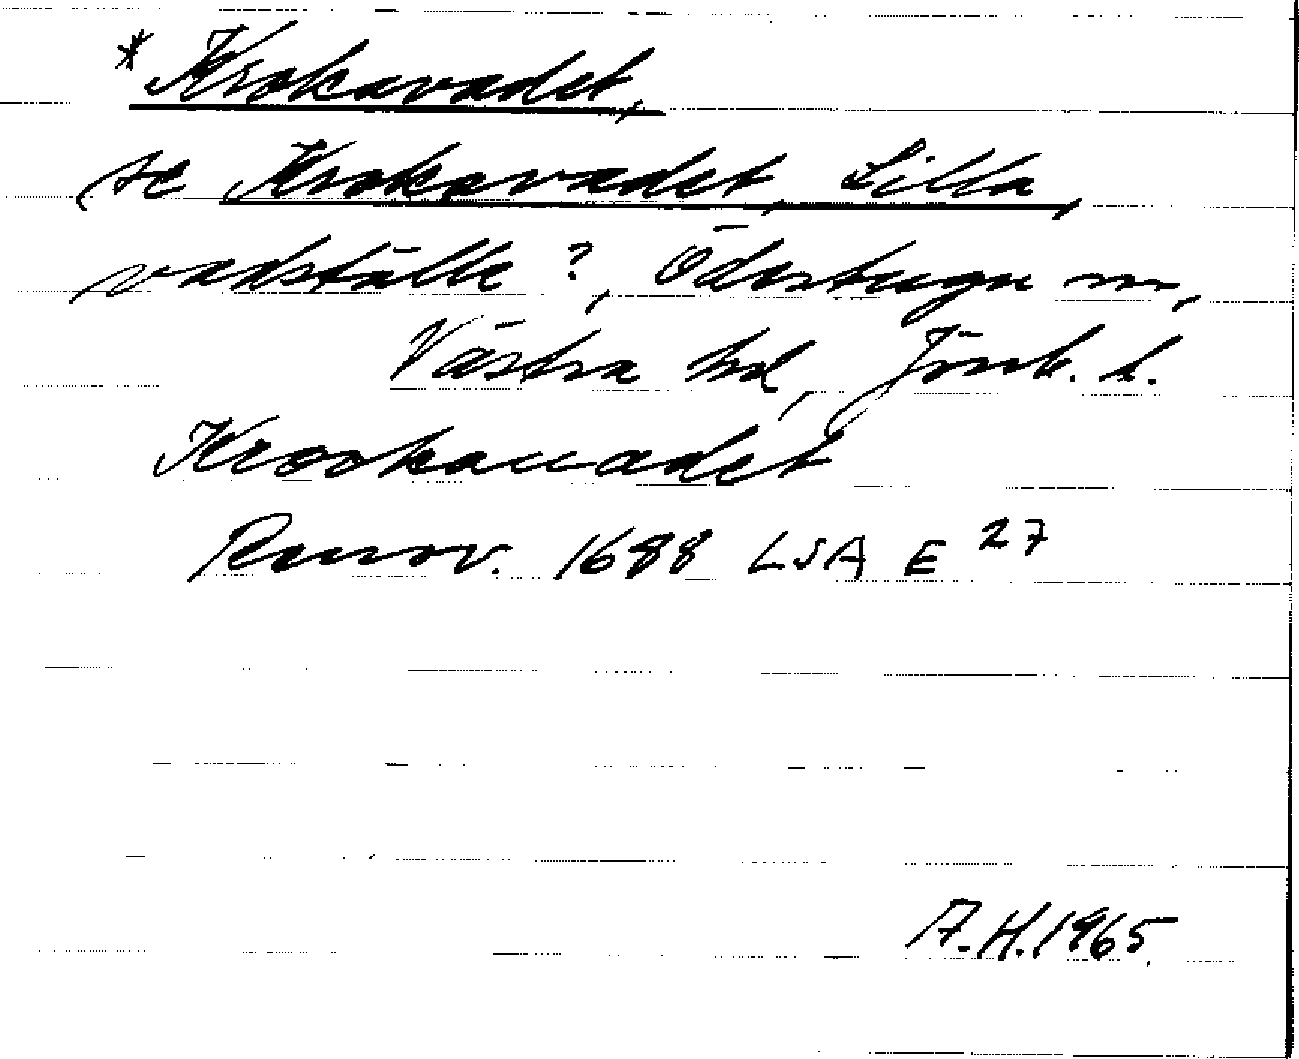 *Krokavadet,
se Krokavadet, Lilla,
vadställe?, Ödestugu sn,
Västra hd, Jönk. l.
Krookauadet
Renov. 1688 LSA E 27
A.H. 1965.